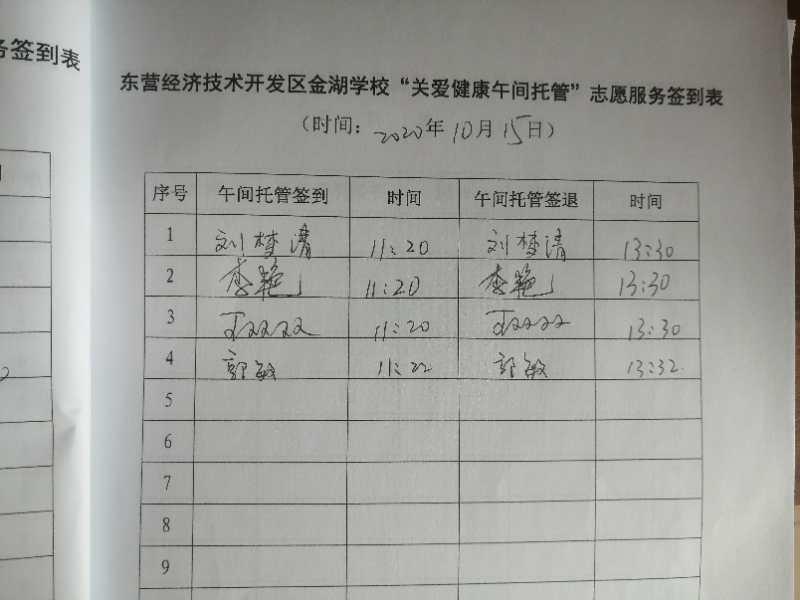 务签到表
东营经济技术开发区金湖学校“关爱健康午间托管”志愿服务签到表
（时间：2020年10月15日）
序号 午间托管签到 时间 午间托管签退 时间
1 刘梦清 11:20 刘梦清 13:30
2 李艳 11:20 李艳 13:30
3 王双双 11:20 王双双 13:30
4 郭敏 11:22 郭敏 13:32
5
6
7
8
9